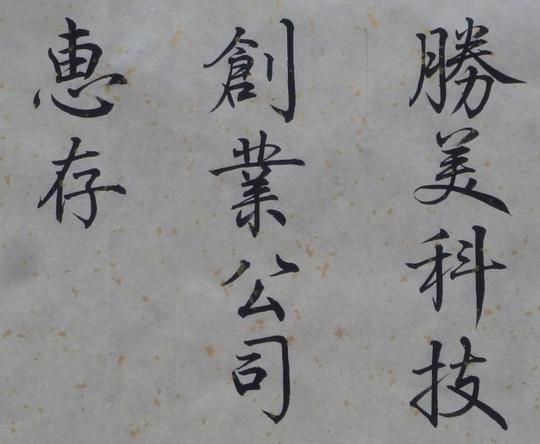 勝美科技
創業公司
惠存